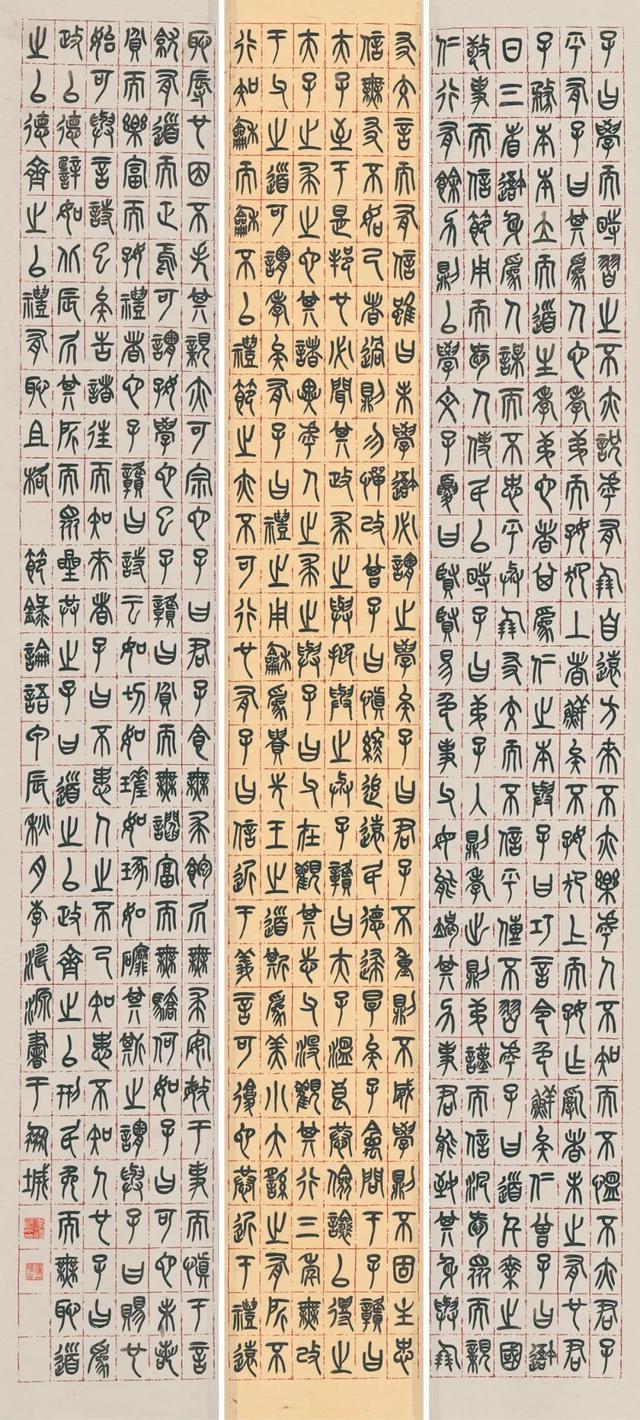 子曰學而時習之不亦說乎有朋自遠方來不亦樂乎人不知而不慍不亦君子
乎有子曰其為人也孝弟而好犯上者鮮矣不好犯上而好作亂者未之有也君
子務本本立而道生孝弟也者其為仁之本與子曰巧言令色鮮矣仁曾子曰吾
日三省吾身為人謀而不忠乎與朋友交而不信乎傳不習乎子曰道千乘之國
敬事而信節用而愛人使民以時子曰弟子入則孝出則弟謹而信汎愛眾而親
仁行有餘力則以學文子夏曰賢賢易色事父母能竭其力事君能致其身與朋
友交言而有信雖曰未學吾必謂之學矣子曰君子不重則不威學則不固主忠
信無友不如己者過則勿憚改曾子曰慎終追遠民德歸厚矣子禽問于子贛曰
夫子至于是邦也必聞其政求之與抑與之與子贛曰夫子溫良恭儉讓以得之
夫子之求之也其諸異乎人之求之與子曰父在觀其志父沒觀其行三年無改
于父之道可謂孝矣有子曰禮之用龢為貴先王之道斯為美小大由之有所不
行知龢而龢不以禮節之亦不可行也有子曰信近于義言可復也恭近于禮遠
恥辱也因不失其親亦可宗也子曰君子食無求飽居無求安敏于事而慎于言
就有道而正焉可謂好學也已子贛曰貧而無諂富而無驕何如子曰可也未若
貧而樂富而好禮者也子贛曰詩云如切如磋如琢如磨其斯之謂與子曰賜也
始可與言詩已矣告諸往而知來者子曰不患人之不己知患不知人也子曰為
政以德譬如北辰居其所而眾星共之子曰道之以政齊之以刑民免而無恥道
之以德齊之以禮有恥且格 節錄論語甲辰秋月李源書于城